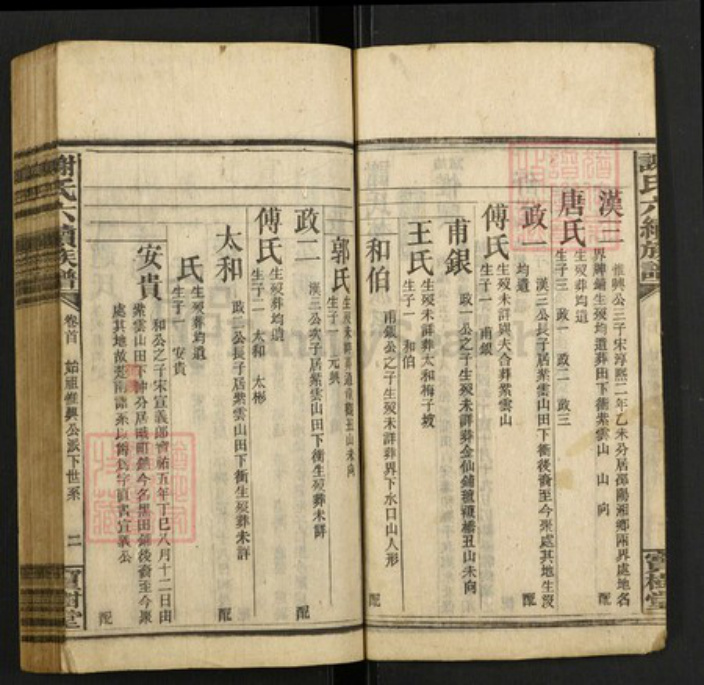 謝氏六續族譜
漢三
惟興公三子宋淳熙二年乙未分居邵陽湘鄉兩界處地名
界牌鋪生歿均遺葬田下衝紫雲山 山 向
配
唐氏
生歿葬均遺
生子三 政一 政二 政三
政一
漢三公長子居紫雲山田下衝後裔至今聚處其地生歿
均遺
配
傅氏
生歿未詳與夫合葬紫雲山
生子一 甫銀
甫銀
政一公之子生歿未詳葬金仙鋪 橋丑山未向
配
王氏
生歿未詳葬太和梅子坡
生子一 和伯
和伯
甫銀公之子生歿未詳葬界下水口山人形
配
寶樹堂
郭氏
生歿未詳葬 丑山未向
生子一 元興
政二
漢三公次子居紫雲山田下衝生歿葬未詳
配
傅氏
生歿葬均遺
生子二 太和 太彬
太和
政二公長子居紫雲山田下衝生歿葬未詳
配
氏
生歿葬均遺
生子一 安貴
安貴
和公之子宋宣義郎寶祐五年丁巳八月十二日由
紫雲山田下衝分居 今名 田 後裔至今聚
處其地故 宣義公
配
謝氏六續族譜
卷首 始祖惟興公派下世系
二
寶樹堂